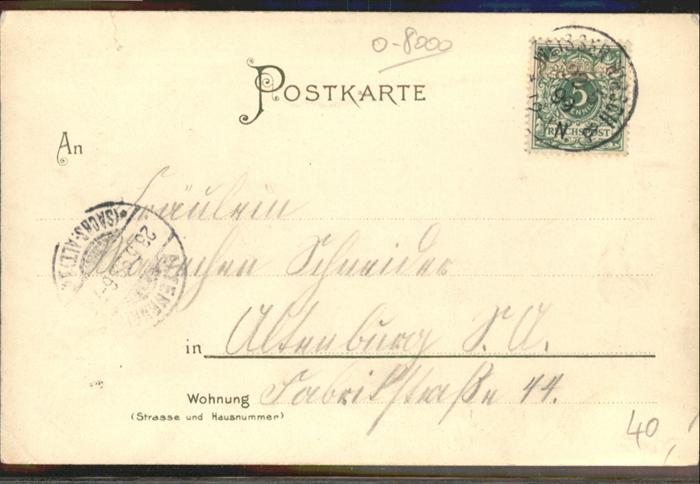 0-8000
POSTKARTE
5
REICHSPOST
An
Fräulein
Schneider
in Altenburg S. A.
Wohnung Fabrikstraße 44.
(Strasse und Hausnummer)
(SACHS.-ALT.)
40